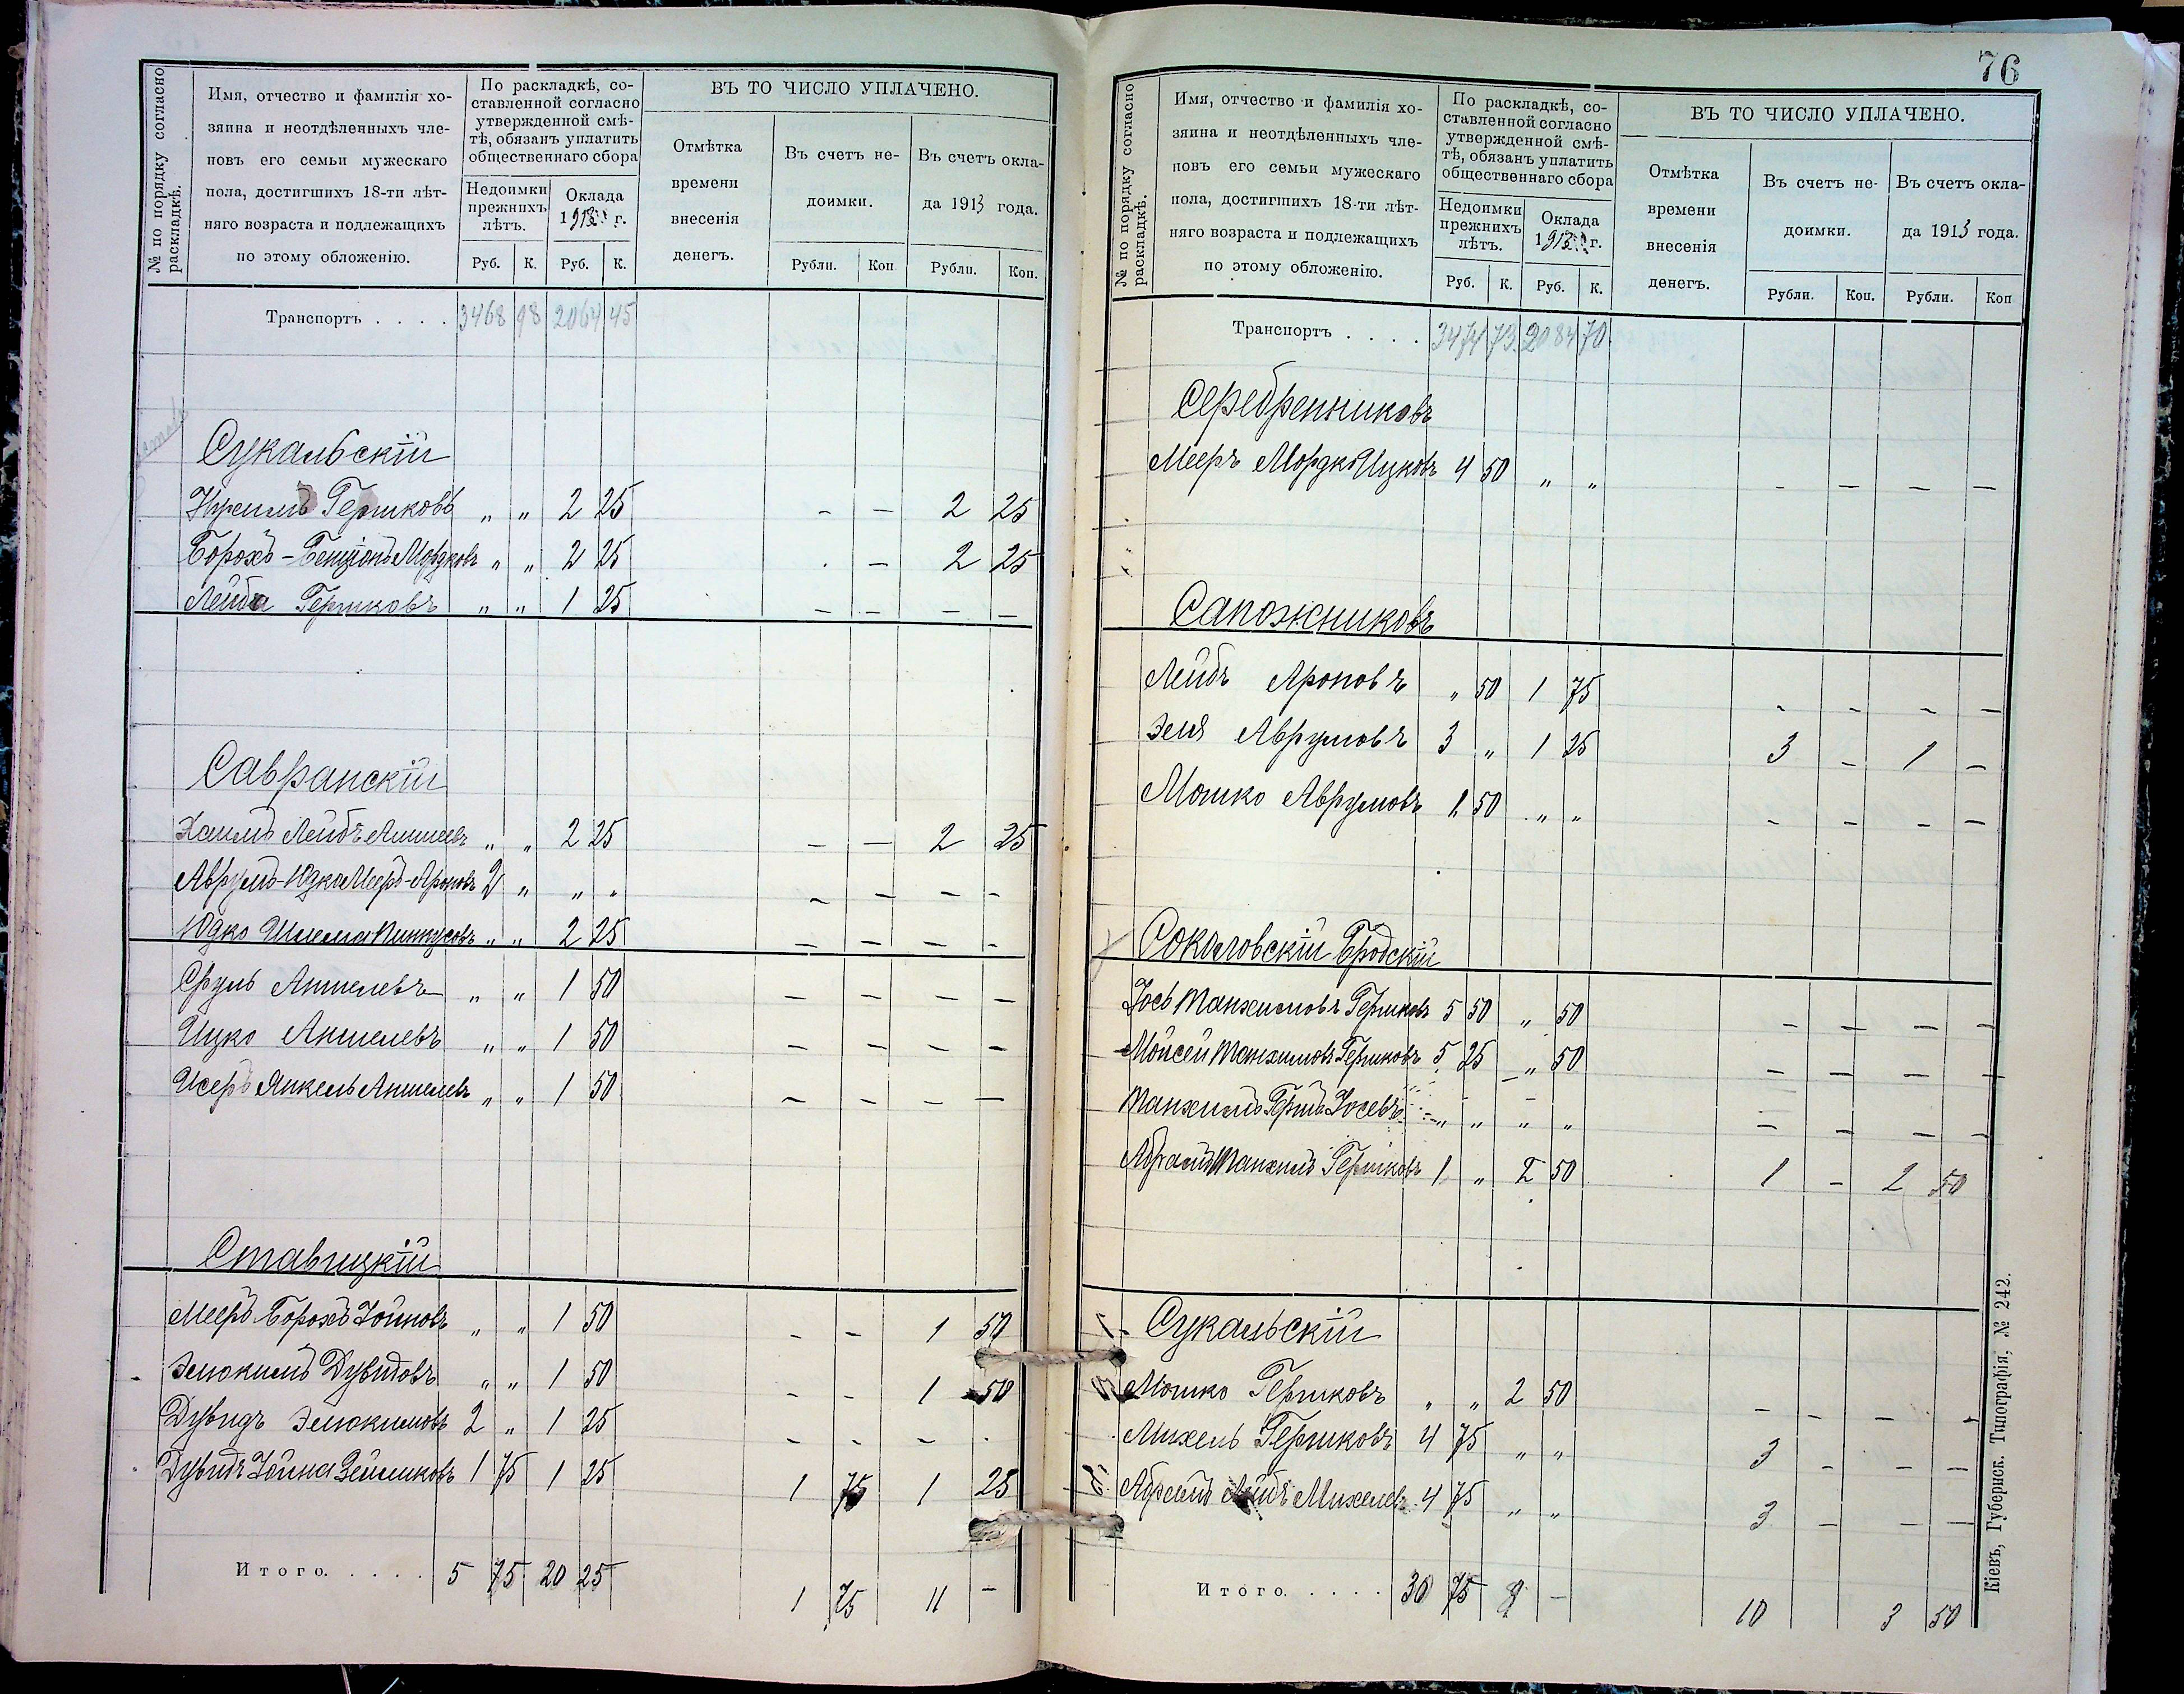 № по порядку согласно раскладкѣ.
Имя, отчество и фамилія хо-
зяина и неотдѣленныхъ чле-
новъ его семьи мужескаго
пола, достигшихъ 18-ти лѣт-
няго возраста и подлежащихъ
по этому обложенію.
По раскладкѣ, со-
ставленной согласно
утвержденной смѣ-
тѣ, обязанъ уплатить
общественнаго сбора
Недоимки
прежнихъ
лѣтъ.
Оклада
1913 г.
Руб. К. Руб. К.
ВЪ ТО ЧИСЛО УПЛАЧЕНО.
Отмѣтка
времени
внесенія
денегъ.
Въ счетъ не-
доимки.
Въ счетъ окла-
да 1913 года.
Рубли. Коп Рубли. Коп.
Транспортъ . . . . 3468 98 2064 45
Сукальскій
Нухимъ Гершковъ „ „ 2 25 - — 2 25
Борохъ-Бенціонъ Мордковъ „ „ 2 25 - — 2 25
Лейба Гершковъ „ „ 1 25 — — — —
Савранскій
Хаимъ Лейбъ Аншелевъ „ „ 2 25 — — 2 25
Аврумъ-Юдко Мееръ-Ароновъ 2 „ „ „ — — — —
Юдко Шлема Пинкусовъ „ „ 2 25 — — — —
Сруль Аншелевъ „ „ 1 50 — — — —
Ицко Аншелевъ „ „ 1 50 — — — —
Исеръ Янкель Аншелевъ „ „ 1 50 — — — —
Ставицкій
Мееръ-Борохъ Іойновъ „ „ 1 50 - - 1 50
Элюкимъ Дувидовъ „ „ 1 50 - - 1 50
Дувидъ Элюкимовъ 2 „ 1 25 - - - -
Дувидъ Іойна Зейликовъ 1 75 1 25 1 75 1 25
Итого. . . . . 5 75 20 25 1 75 11 —
76
№ по порядку согласно раскладкѣ.
Имя, отчество и фамилія хо-
зяина и неотдѣленныхъ чле-
новъ его семьи мужескаго
пола, достигшихъ 18-ти лѣт-
няго возраста и подлежащихъ
по этому обложенію.
По раскладкѣ, со-
ставленной согласно
утвержденной смѣ-
тѣ, обязанъ уплатить
общественнаго сбора
Недоимки
прежнихъ
лѣтъ.
Оклада
1913 г.
Руб. К. Руб. К.
ВЪ ТО ЧИСЛО УПЛАЧЕНО.
Отмѣтка
времени
внесенія
денегъ.
Въ счетъ не-
доимки.
Въ счетъ окла-
да 1913 года.
Рубли. Коп. Рубли. Коп
Транспортъ . . . . 3474 73 2084 70
Серебренниковъ
Мееръ Мордко Ицковъ 4 50 „ „ — — — —
Сапожниковъ
Лейбъ Ароновъ „ 50 1 75 - - - —
Зеля Аврумовъ 3 „ 1 25 3 — 1 —
Мошко Аврумовъ 1 50 „ „ - - - —
Соколовскій Бродскій
Іось Танхимовъ Гершковъ 5 50 „ 50 — — — —
Мойсей Танхимовъ Гершковъ 5 25 „ 50 — — — —
Танхимъ Гершъ Іосевъ „ „ „ „ — — — —
Абрамъ Танхимъ Гершковъ 1 „ 2 50 1 — 2 50
Сукальскій
Мошко Гершковъ „ „ 2 50 — — — -
Михель Гершковъ 4 75 „ „ 3 — — —
Абрамъ Лейбъ Михелевъ 4 75 „ „ 3 — — —
Итого. . . . . 30 75 9 — 10 3 50
Кіевъ, Губернск. Типографія, № 242.